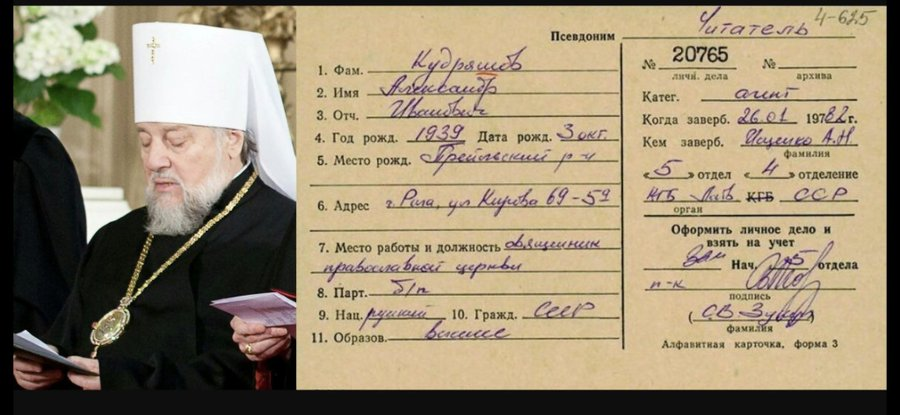 4-625
Псевдоним Читатель
1. Фам. Кудряшов
2. Имя Александр
3. Отч. Иванович
4. Год рожд. 1939 Дата рожд. 3 окт.
5. Место рожд. Прейльский р-н
6. Адрес г. Рига, ул Кирова 69-59
7. Место работы и должность священник
православной церкви
8. Парт. б/п
9. Нац. русский 10. Гражд. СССР
11. Образов. высшее
№ 20765 №
личн. дела архива
Катег. агент
Когда заверб. 26.01 1982г.
Кем заверб. Ищенко А.Н.
фамилия
«5» отдел «4» отделение
КГБ Латв КГБ ССР
орган
Оформить личное дело и
взять на учет
Зам Нач. 5 отдела
п-к
подпись
фамилия
Алфавитная карточка, форма 3